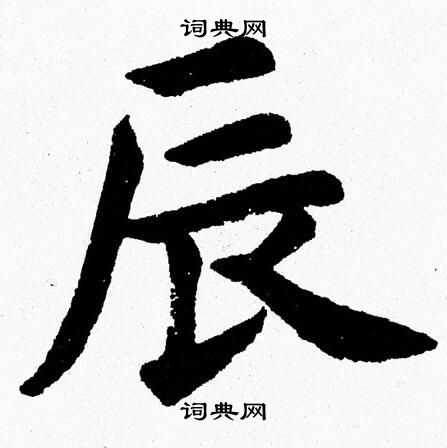 词典网
辰
词典网